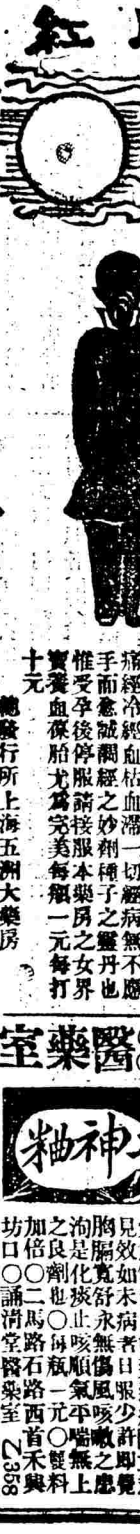 紅
痛經冷經血枯血滯一切經病無不應
手而愈誠調經之妙劑種子之靈丹也
惟受孕後停服請接服本藥房之女界
寶養血保胎尤爲完美每瓶一元每打
十元
總發行所上海五洲大藥房
醫藥室
神糊
見效如未病者日服少許即覺
胸膈寬舒永無傷風咳嗽之患
洵是化痰止咳順氣平喘無上
之良劑也○每瓶一元○雙料
加倍○二馬路石路西首禾興
坊口○誦清堂醫藥室 Z358